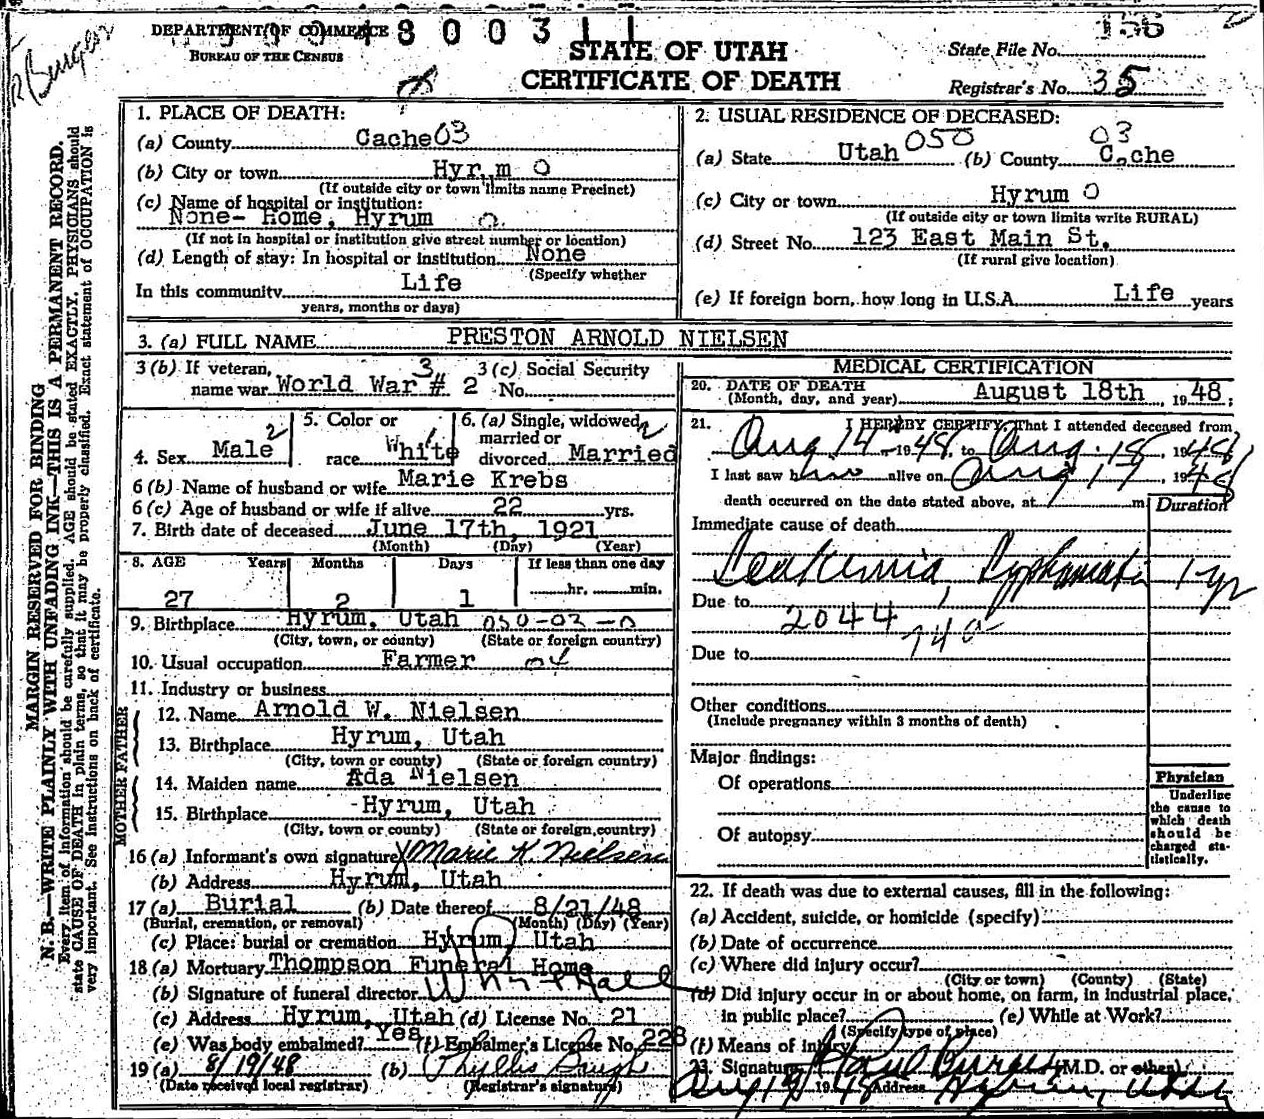 DEPARTMENT OF COMMERCE
BUREAU OF THE CENSUS
STATE OF UTAH
CERTIFICATE OF DEATH
State File No. 156
Registrar's No. 35
MARGIN RESERVED FOR BINDING
N. B.—WRITE PLAINLY WITH UNFADING INK—THIS IS A PERMANENT RECORD.
Every item of information should be carefully supplied. AGE should be stated EXACTLY. PHYSICIANS should
state CAUSE OF DEATH in plain terms, so that it may be properly classified. Exact statement of OCCUPATION is
very important. See instructions on back of certificate.
1. PLACE OF DEATH:
(a) County Cache 03
(b) City or town Hyr m 0
(If outside city or town limits name Precinct)
(c) Name of hospital or institution:
None- Home, Hyrum 0
(If not in hospital or institution give street number or location)
(d) Length of stay: In hospital or institution None
(Specify whether
In this community Life
years, months or days)
2. USUAL RESIDENCE OF DECEASED:
(a) State Utah 050 (b) County Cache 03
(c) City or town Hyrum 0
(If outside city or town limits write RURAL)
(d) Street No. 123 East Main St.
(If rural give location)
(e) If foreign born, how long in U.S.A. Life years
3. (a) FULL NAME PRESTON ARNOLD NIELSEN
3 (b) If veteran, name war World War # 2 3
3 (c) Social Security No.
4. Sex Male 2
5. Color or race White 1
6. (a) Single, widowed, married or divorced Married 2
6 (b) Name of husband or wife Marie Krebs
6 (c) Age of husband or wife if alive 22 yrs.
7. Birth date of deceased June 17th, 1921
(Month) (Day) (Year)
8. AGE Years Months Days If less than one day
27 2 1 hr. min.
9. Birthplace Hyrum, Utah 050-03-0
(City, town, or county) (State or foreign country)
10. Usual occupation Farmer 04
11. Industry or business
FATHER
12. Name Arnold W. Nielsen
13. Birthplace Hyrum, Utah
(City, town or county) (State or foreign country)
MOTHER
14. Maiden name Ada Nielsen
15. Birthplace Hyrum, Utah
(City, town or county) (State or foreign country)
16 (a) Informant's own signature X Marie K. Nielsen
(b) Address Hyrum, Utah
17 (a) Burial (b) Date thereof 8/21/48
(Burial, cremation, or removal) (Month) (Day) (Year)
(c) Place: burial or cremation Hyrum, Utah
18 (a) Mortuary Thompson Funeral Home
(b) Signature of funeral director
(c) Address Hyrum, Utah (d) License No. 21
(e) Was body embalmed? Yes (f) Embalmer's License No. 228
19 (a) 8/19/48 (b) Phyllis Baugh
(Date received local registrar) (Registrar's signature)
MEDICAL CERTIFICATION
20. DATE OF DEATH August 18th, 1948;
(Month, day, and year)
21. I HEREBY CERTIFY, That I attended deceased from
Aug 14 1948 to Aug. 18, 1948,
I last saw him alive on Aug 17, 1948
death occurred on the date stated above, at m
Duration
Immediate cause of death
Leukemia, Lymphatic 1 yr
Due to 2044 740
Due to
Other conditions
(Include pregnancy within 3 months of death)
Major findings:
Of operations
Of autopsy
Physician
Underline
the cause to
which death
should be
charged sta-
tistically.
22. If death was due to external causes, fill in the following:
(a) Accident, suicide, or homicide (specify)
(b) Date of occurrence
(c) Where did injury occur?
(City or town) (County) (State)
(d) Did injury occur in or about home, on farm, in industrial place,
in public place? (e) While at Work?
(Specify type of place)
(f) Means of injury
23. Signature (M.D. or other)
Aug 19, 1948 Address Hyrum, Utah